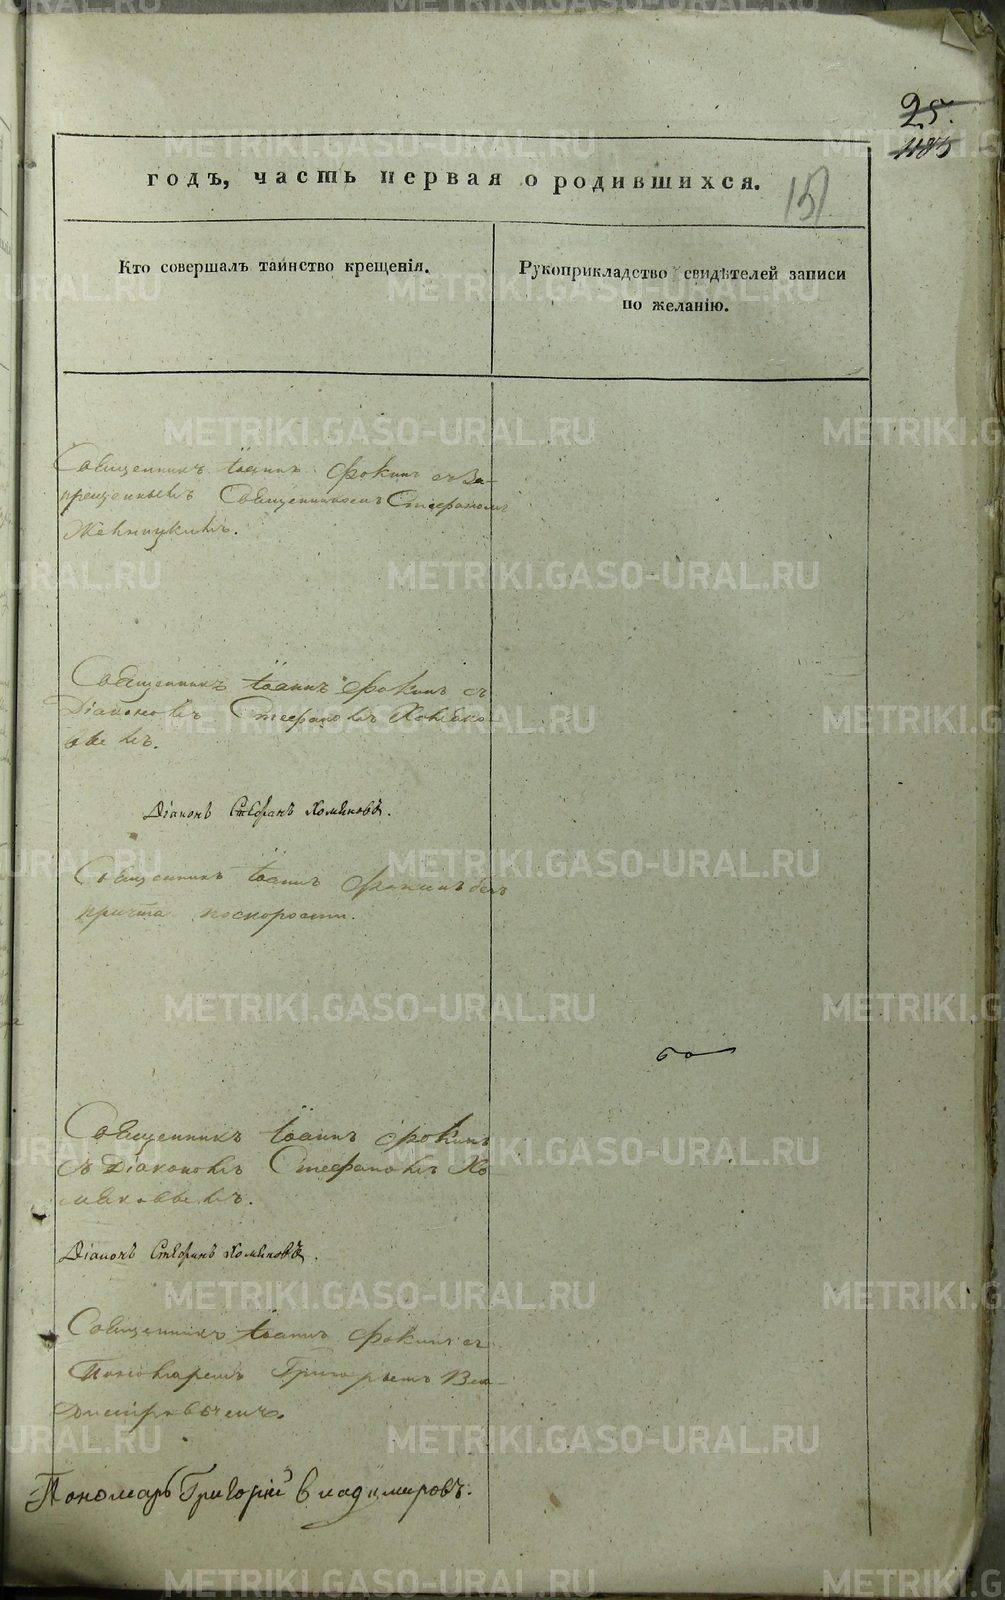 25.
1185
годъ, часть первая о родившихся.
151
Кто совершалъ таинство крещенія.
Рукоприкладство свидѣтелей записи
по желанію.
Священникъ Іоаннъ Фокинъ съ за-
прещеннымъ Священникомъ Стефаномъ
Священникъ Іоаннъ Фокинъ съ
Діакономъ Стефаномъ Хомяко
вымъ.
Діаконъ Стефанъ Хомяковъ.
Священникъ Іоаннъ Фокинъ безъ
причта поскорости.
Священникъ Іоаннъ Фокинъ
съ Діакономъ Стефаномъ Хо
мяковымъ.
Діаконъ Стефанъ Хомяковъ.
Священникъ Іоаннъ Фокинъ съ
Пономаремъ Григорьемъ Вла-
димировымъ.
Пономарь Григорій Владимировъ.
METRIKI.GASO-URAL.RU